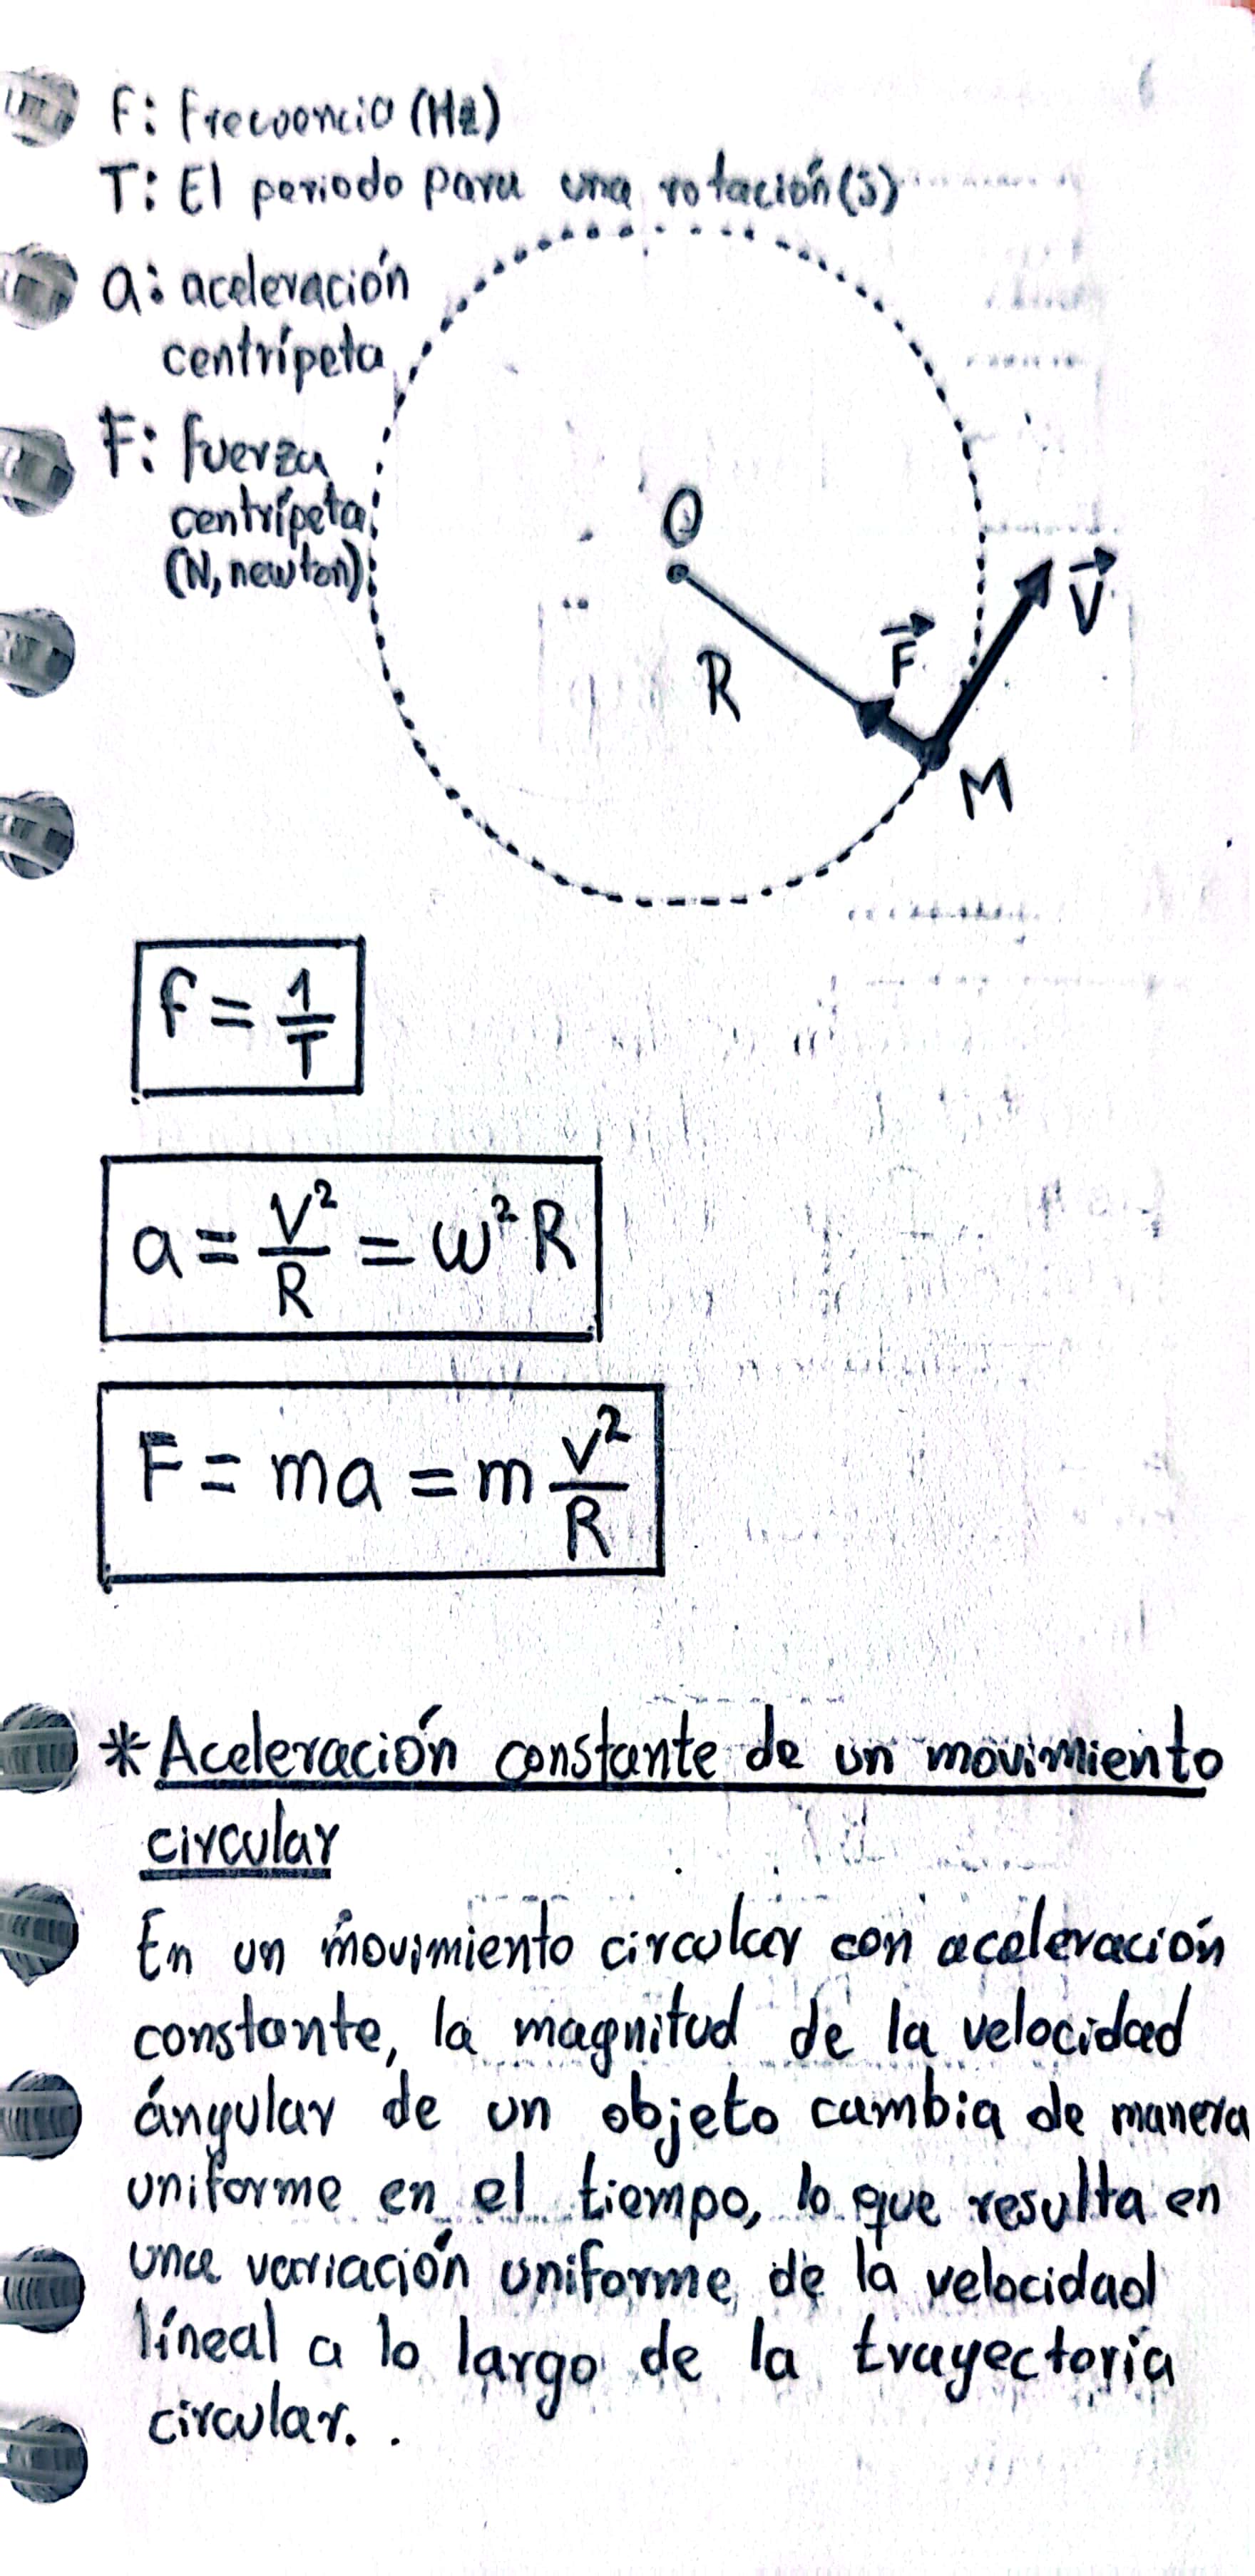 F: Frecuencia (Hz)
T: El periodo para una rotación (s)
a: aceleración
centrípeta
F: fuerza
centrípeta
(N, newton)
O
R
F
V
M
f = 1/T
a = V²/R = ω²R
F = ma = m v²/R
* Aceleración constante de un movimiento
circular
En un movimiento circular con aceleración
constante, la magnitud de la velocidad
ángular de un objeto cambia de manera
uniforme en el tiempo, lo que resulta en
una variación uniforme de la velocidad
líneal a lo largo de la trayectoría
circular. .